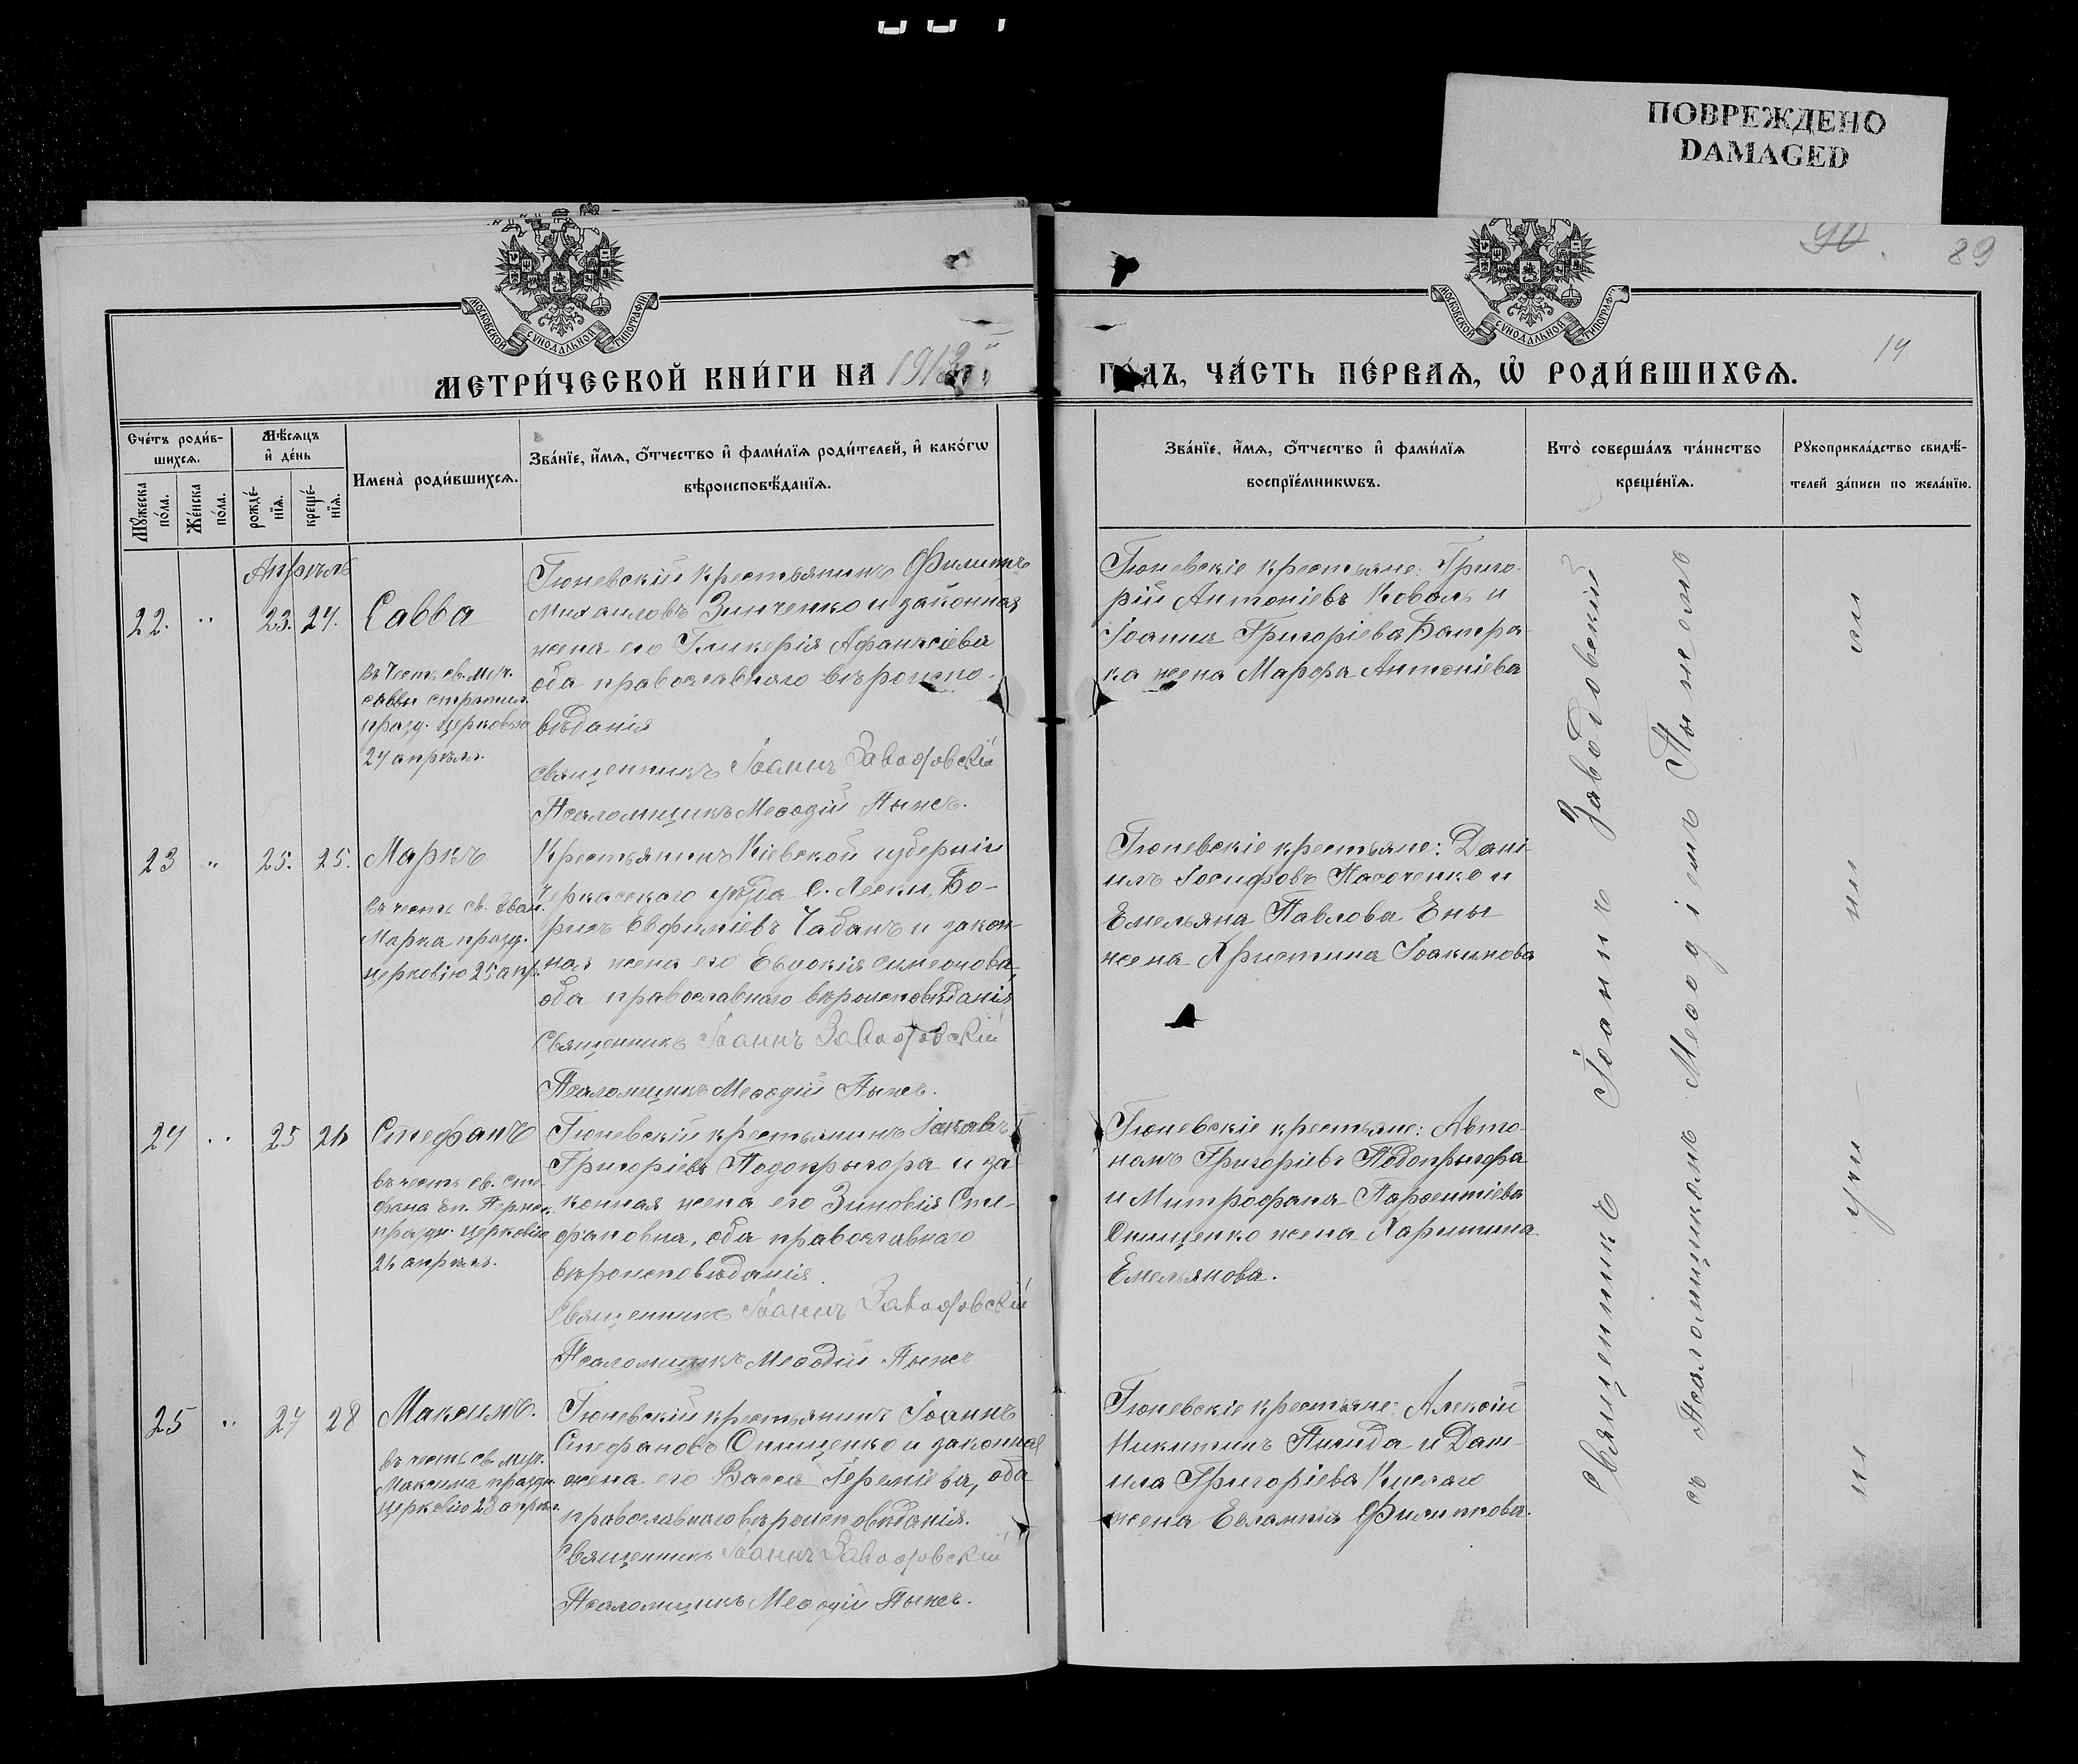 ПОВРЕЖДЕНО
DAMAGED
90.
89
МОСКОВСКОЙ СѴНОДАЛЬНОЙ ТИПОГРАФІИ
МОСКОВСКОЙ СѴНОДАЛЬНОЙ ТИПОГРАФІИ
14
МЕТРИ́ЧЕСКОЙ КНИ́ГИ НА 191
ГО́ДЪ, ЧА́СТЬ ПЕ́РВАѦ, Ѡ РОДИ́ВШИХСѦ.
Сче́тъ роди́в-
шихсѧ.
Мѣ́сѧцъ
и҆ де́нь
Мꙋ́жеска
по́ла.
Же́нска
по́ла.
рожде́-
нїѧ.
креще́-
нїѧ.
Имена̀ роди́вшихсѧ.
Зва́нїе, и҆́мѧ, ѻ҆́тчество и҆ фами́лїѧ роди́телей, и҆ како́гѡ
вѣроисповѣ́данїѧ.
Зва́нїе, и҆́мѧ, ѻ҆́тчество и҆ фами́лїѧ
воспрїе́мникѡвъ.
Кто̀ соверша́лъ та́инство
креще́нїѧ.
Рꙋкоприкла́дство свидѣ́-
телей за́писи по жела́нїю.
Апрѣль
22. " 23. 24. Савва
въ честь св. муч.
Саввы стратил.
празд. церковью
24 апрѣля.
Гюневскій крестьянинъ Филиппъ
Михаиловъ Зинченко и законная
жена его Гликерія Афанасіева
оба православнаго вѣроиспо-
вѣданія
Священникъ Іоаннъ Заводовскій
Псаломщикъ Меѳодій Пынеъ.
Гюневскіе крестьяне: Григо-
рій Антоніевъ Коваль и
Іоанна Григоріева Батра-
ка жена Марфа Антоніева
23 " 25. 25. Маркъ
въ честь св. Еван.
Марка празд.
церковію 25 апр.
Крестьянинъ Кіевской губерніи
Черкасского уѣзда С. Лески, Бо-
рисъ Евфиміевъ Чабанъ и закон-
ная жена его Евдокія Симеонова,
оба православнаго вѣроисповѣданія
Священникъ Іоаннъ Заводовскій
Псаломщикъ Меѳодій Пынеъ.
Гюневскіе крестьяне: Дані-
илъ Іосифовъ Пасоченко и
Емельяна Павлова Ены
жена Христина Іоакимова
24 " 25 26 Стефанъ
въ честь св. Сте-
фана Еп. Пермск.
праздн. церковію
26 апрѣля.
Гюневскій крестьянинъ Іаковъ
Григоріевъ Подопрыгора и за
конная жена его Зиновія Сте-
фановна, оба православнаго
вѣроисповѣданія.
Священникъ Іоаннъ Заводовскій
Псаломщикъ Меѳодій Пынеъ
Гюневскіе крестьяне: Авто-
номъ Григоріевъ Подопрыгора
и Митрофана Парѳентіева
Онищенко жена Харитина
Емельянова.
25 " 27 28 Максимъ.
въ честь св. муч.
Максима праздн.
церковію 28 апрѣл.
Гюневскій крестьянинъ Іоаннъ
Стефановъ Онищенко и законная
жена его Васса Іереміева, оба
православнаго вѣроисповѣданія.
Священникъ Іоаннъ Заводовскій
Псаломщикъ Меѳодій Пынеъ.
Гюневскіе крестьяне: Алексій
Никитинъ и Дані-
ила Григоріева Кислаго
жена Евлампія Филиппова.
Священникъ Іоаннъ Заводовскій
съ Псаломщикомъ Меѳодіемъ Пынеемъ